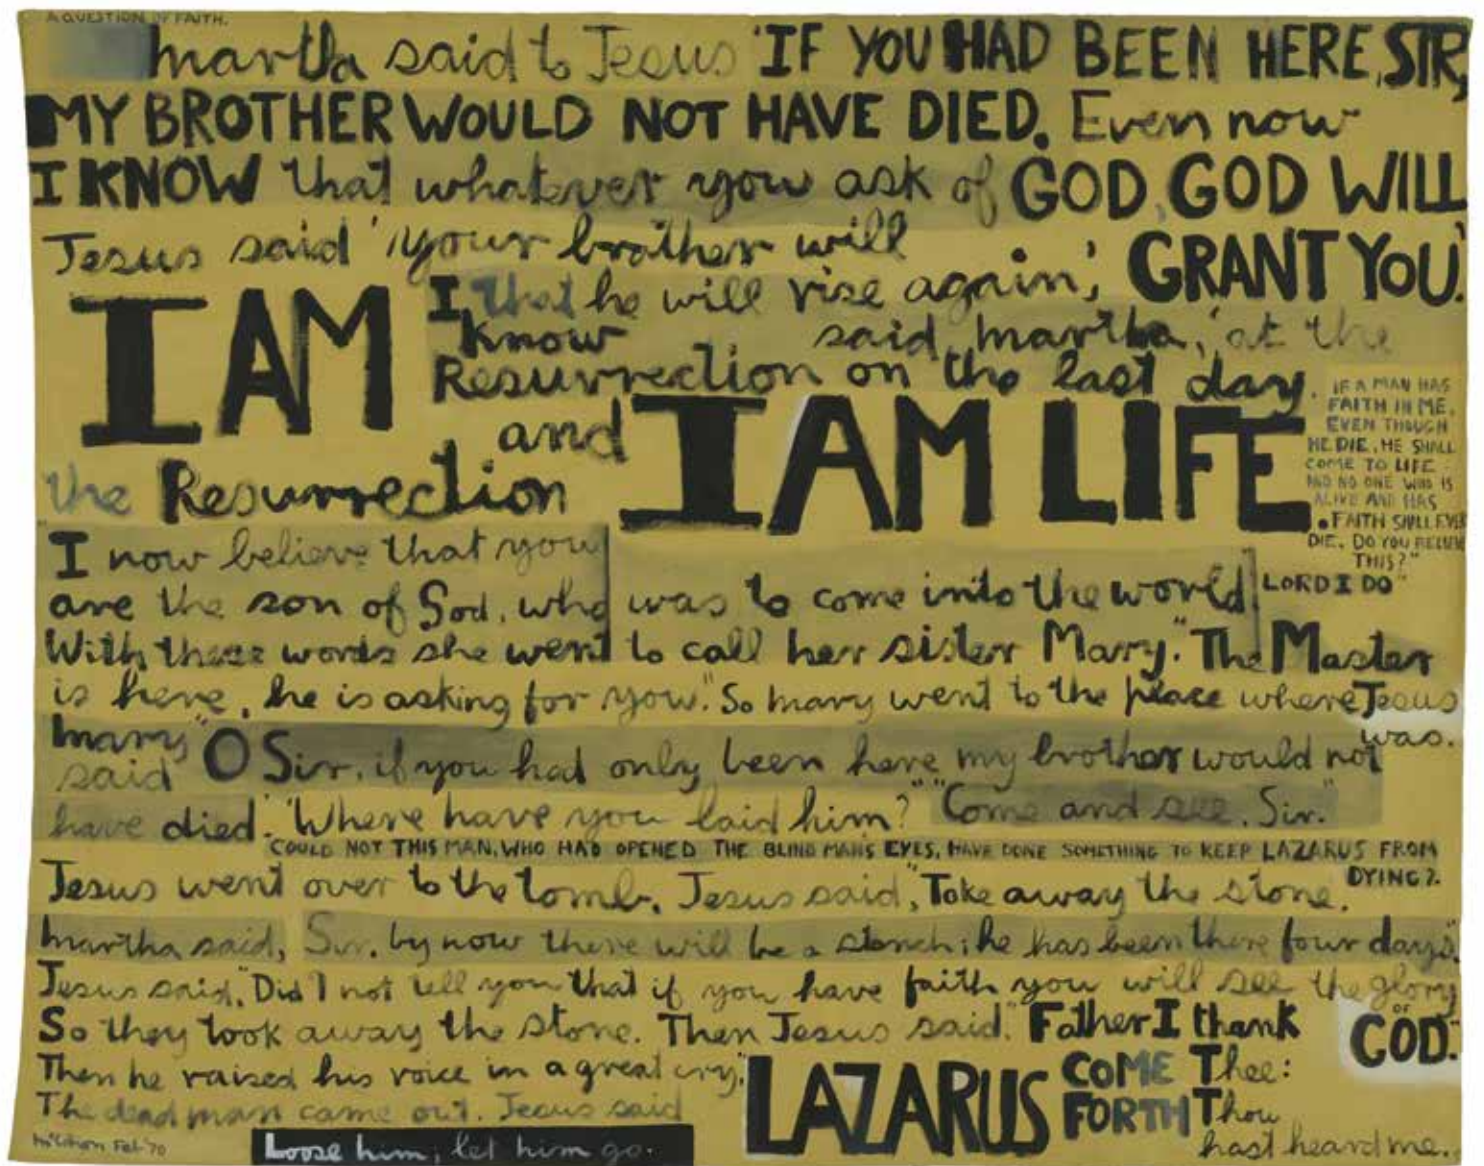 A QUESTION OF FAITH.
martha said to Jesus 'IF YOU HAD BEEN HERE, SIR,
MY BROTHER WOULD NOT HAVE DIED. Even now
I KNOW that whatever you ask of GOD, GOD WILL
GRANT YOU.'
Jesus said 'your brother will
rise again',
I know that he will
said, martha, 'at the
Resurrection on the last day.
I AM
the Resurrection
and I AM LIFE
IF A MAN HAS
FAITH IN ME,
EVEN THOUGH
HE DIE, HE SHALL
COME TO LIFE
AND NO ONE WHO IS
ALIVE AND HAS
FAITH SHALL EVER
DIE. DO YOU BELIEVE
THIS?"
LORD I DO"
"I now believe that you
are the son of God, who was to come into the world
With these words she went to call her sister Mary. "The Master
is here, he is asking for you." So mary went to the place where Jesus
was.
mary said "O Sir, if you had only been here my brother would not
have died. 'Where have you laid him?" "Come and see, Sir."
COULD NOT THIS MAN, WHO HAD OPENED THE BLIND MANS EYES, HAVE DONE SOMETHING TO KEEP LAZARUS FROM
DYING?
Jesus went over to the tomb. Jesus said, "Take away the stone.
martha said, Sir, by now there will be a stench; he has been there four days".
Jesus said, "Did I not tell you that if you have faith you will see the glory
OF
GOD."
So they took away the stone. Then Jesus said. "Father I thank
Thee:
Thou
hast heard me.
Then he raised his voice in a great cry,"
LAZARUS COME
FORTH
The dead man came out. Jesus said
Loose him, let him go.
McCahon Feb '70